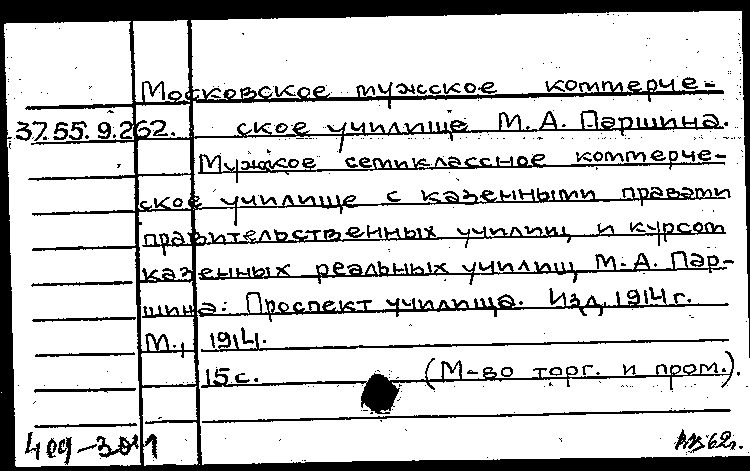 Московское мужское коммерче-
37.55.9.262. ское училище М. А. Паршина.
Мужское семиклассное коммерче-
ское училище с казенными правами
правительственных училищ и курсом
казенных реальных училищ М. А. Пар-
шина: Проспект училища. Изд. 1914 г.
М., 1914.
15 с. (М-во торг. и пром.).
409-3011
62г.